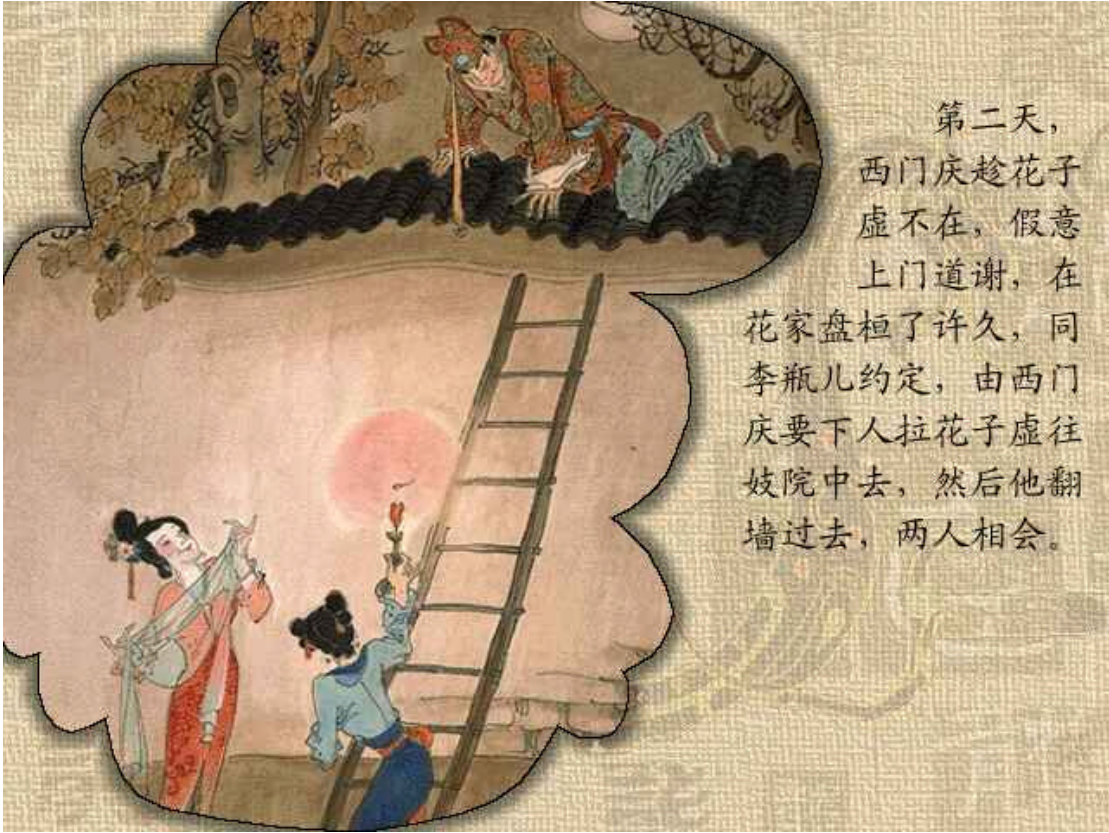 第二天，
西门庆趁花子
虚不在，假意
上门道谢，在
花家盘桓了许久，同
李瓶儿约定，由西门
庆要下人拉花子虚往
妓院中去，然后他翻
墙过去，两人相会。